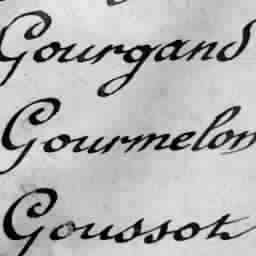 Gourgand
Gourmelon
Goussot